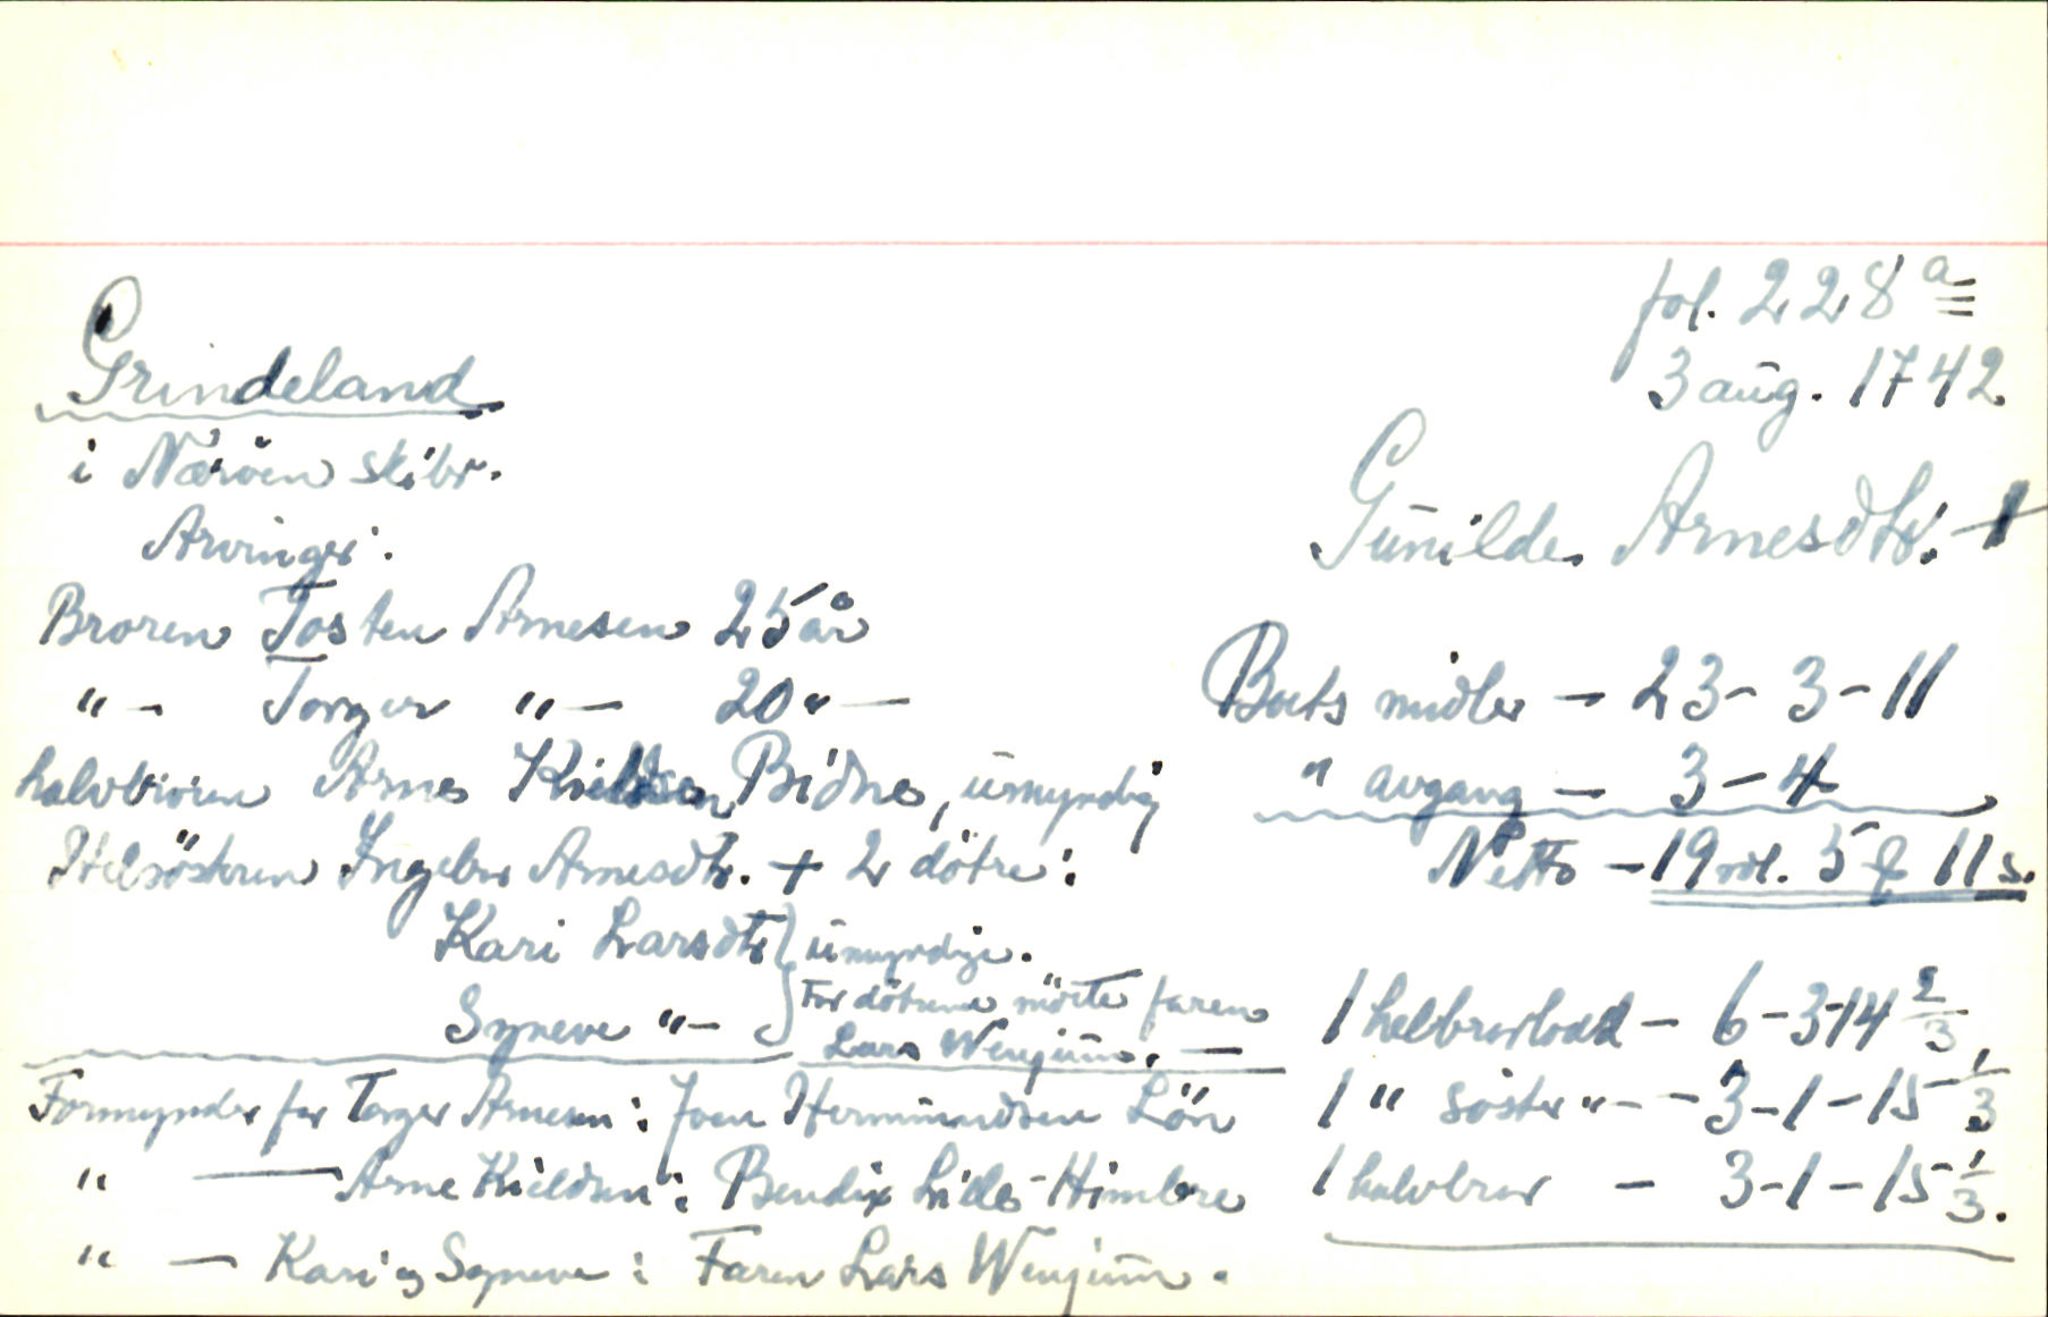 fol. 228 a
3 aug. 1742
Grindeland
i Næröen skibr.
Gunilde Arnesdtr. +
Arvinger:
Broren Tosten Arnesen 25 år
"- Torger "- 20 "-
halvbroren Arne Kieldsen Bidne, umyndig
Helsösteren Ingebor Arnesdtr. + 2 dötre:
Kari Larsdtr } umyndige.
Syneve "- } For dötrene mötte faren
Lars Wenjum. -
Formynder for Torger Arnesen: Joen Hermundsen Lön
" - Arne Kieldsen: Bendix Lille-Himbre
" - Kari og Syneve: Faren Lars Wenjum.
Boets midler - 23 - 3 - 11
" avgang - 3 - 4
Netto - 19 rdl. 5 ƒ 11 s.
1 helbrorlodd - 6 - 3 - 14 2/3
1 " söster "- - 3 - 1 - 15 1/3
1 halvbror - 3 - 1 - 15 1/3.